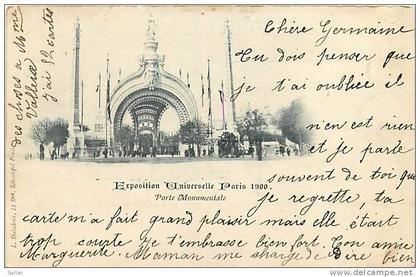 Chère Germaine
Tu dois penser que
je t'ai oublié il
n'en est rien
et je parle
souvent de toi que
je regrette, ta
carte m'a fait grand plaisir mais elle était
trop courte Je t'embrasse bien fort. Ton amie
Marguerite. Maman me charge de dire bien
des choses a Mme
Vallera
J'ai 52 cartes
Exposition Universelle Paris 1900.
Porte Monumentale